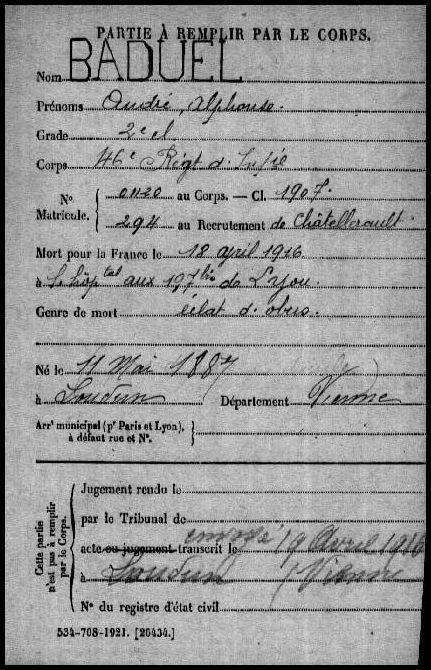 PARTIE À REMPLIR PAR LE CORPS.
Nom BADUEL
Prénoms André, Alphonse.
Grade 2e cl
Corps 46e Régt d'Infie
N° Matricule. 01120 au Corps. — Cl. 1907.
294 au Recrutement de Châtellerault
Mort pour la France le 18 april 1916
à l'hôpital aux de Lyon.
Genre de mort éclat d'obus.
Né le 11 Mai 1887
à Loudun Département Vienne
Arrt municipal (pr Paris et Lyon),
à défaut rue et N°.
Cette partie n'est pas à remplir par le Corps.
Jugement rendu le
par le Tribunal de
envoyé
acte ou jugement transcrit le 19 Avril 1916
à Loudun (Vienne
N° du registre d'état civil
534-708-1921. [26434.]